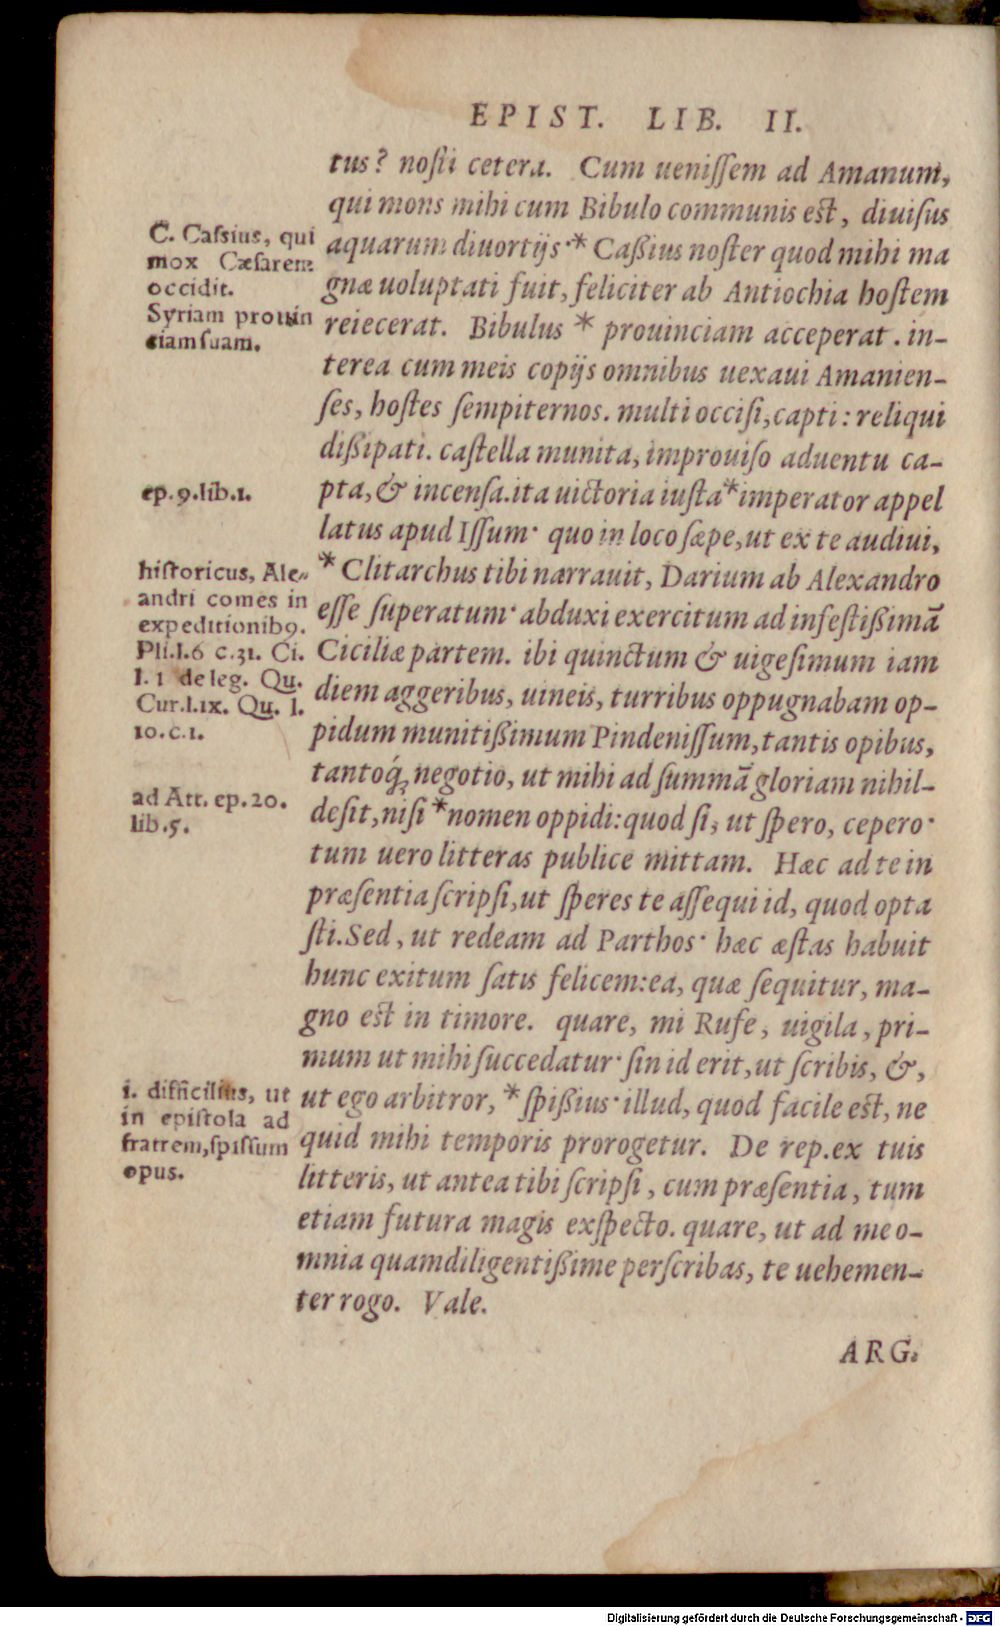 EPIST. LIB. II.
tus? nosti cetera. Cum uenissem ad Amanum,
qui mons mihi cum Bibulo communis est, diuisus
aquarum diuortijs·* Caßius noster quod mihi ma
gnæ uoluptati fuit, feliciter ab Antiochia hostem
reiecerat. Bibulus * prouinciam acceperat. in-
terea cum meis copijs omnibus uexaui Amanien-
ses, hostes sempiternos. multi occisi, capti: reliqui
dißipati. castella munita, improuiso aduentu ca-
pta, & incensa. ita uictoria iusta * imperator appel
latus apud Issum· quo in loco sæpe, ut ex te audiui,
* Clitarchus tibi narrauit, Darium ab Alexandro
esse superatum· abduxi exercitum ad infestißimā
Ciciliæ partem. ibi quinctum & uigesimum iam
diem aggeribus, uineis, turribus oppugnabam op-
pidum munitißimum Pindenissum, tantis opibus,
tantoq́; negotio, ut mihi ad summā gloriam nihil-
desit, nisi * nomen oppidi: quod si, ut spero, cepero·
tum uero litteras publice mittam. Hæc ad te in
præsentia scripsi, ut speres te assequi id, quod opta
sti. Sed, ut redeam ad Parthos· hæc æstas habuit
hunc exitum satis felicem: ea, quæ sequitur, ma-
gno est in timore. quare, mi Rufe, uigila, pri-
mum ut mihi succedatur· sin id erit, ut scribis, &,
ut ego arbitror, * spißius· illud, quod facile est, ne
quid mihi temporis prorogetur. De rep. ex tuis
litteris, ut antea tibi scripsi, cum præsentia, tum
etiam futura magis exspecto. quare, ut ad me o-
mnia quamdiligentißime perscribas, te uehemen-
ter rogo. Vale.
ARG.
C. Cassius, qui
mox Cæsarem
occidit.
Syriam prouin
ciam suam.
ep. 9. lib. 1.
historicus, Ale-
andri comes in
expeditionib9.
Pli. l. 6 c. 31. Ci.
l. 1 de leg. Qu.
Cur. l. ix. Qu. l.
10. c. 1.
ad Att. ep. 20.
lib. 5.
i. difficilius, ut
in epistola ad
fratrem, spissum
opus.
Digitalisierung gefördert durch die Deutsche Forschungsgemeinschaft - DFG